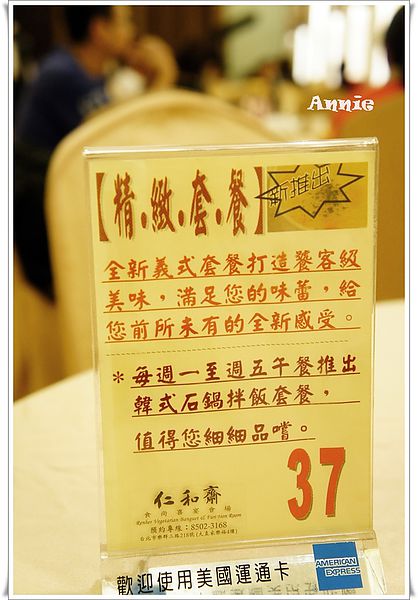 Annie
【精.緻.套.餐】
新推出
全新義式套餐打造饕客級
美味，滿足您的味蕾，給
您前所未有的全新感受。
＊每週一至週五午餐推出
韓式石鍋拌飯套餐，
值得您細細品嚐。
37
仁和齋
食尚喜宴會場
Renher Vegetarian Banquet & Function Room
預約專線：8502-3168
台北市樂群二路218號（大直家樂福4樓）
歡迎使用美國運通卡
AMERICAN
EXPRESS